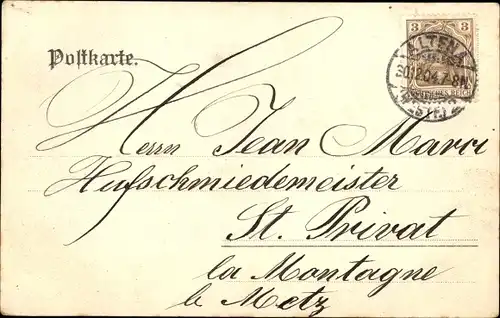 Postkarte.
3 3
ALTENA
30.12.04.7-8N.
DEUTSCHES REICH
(WESTF.)
Herrn Jean Marci
Hufschmiedemeister
St. Privat
la Montagne
b Metz